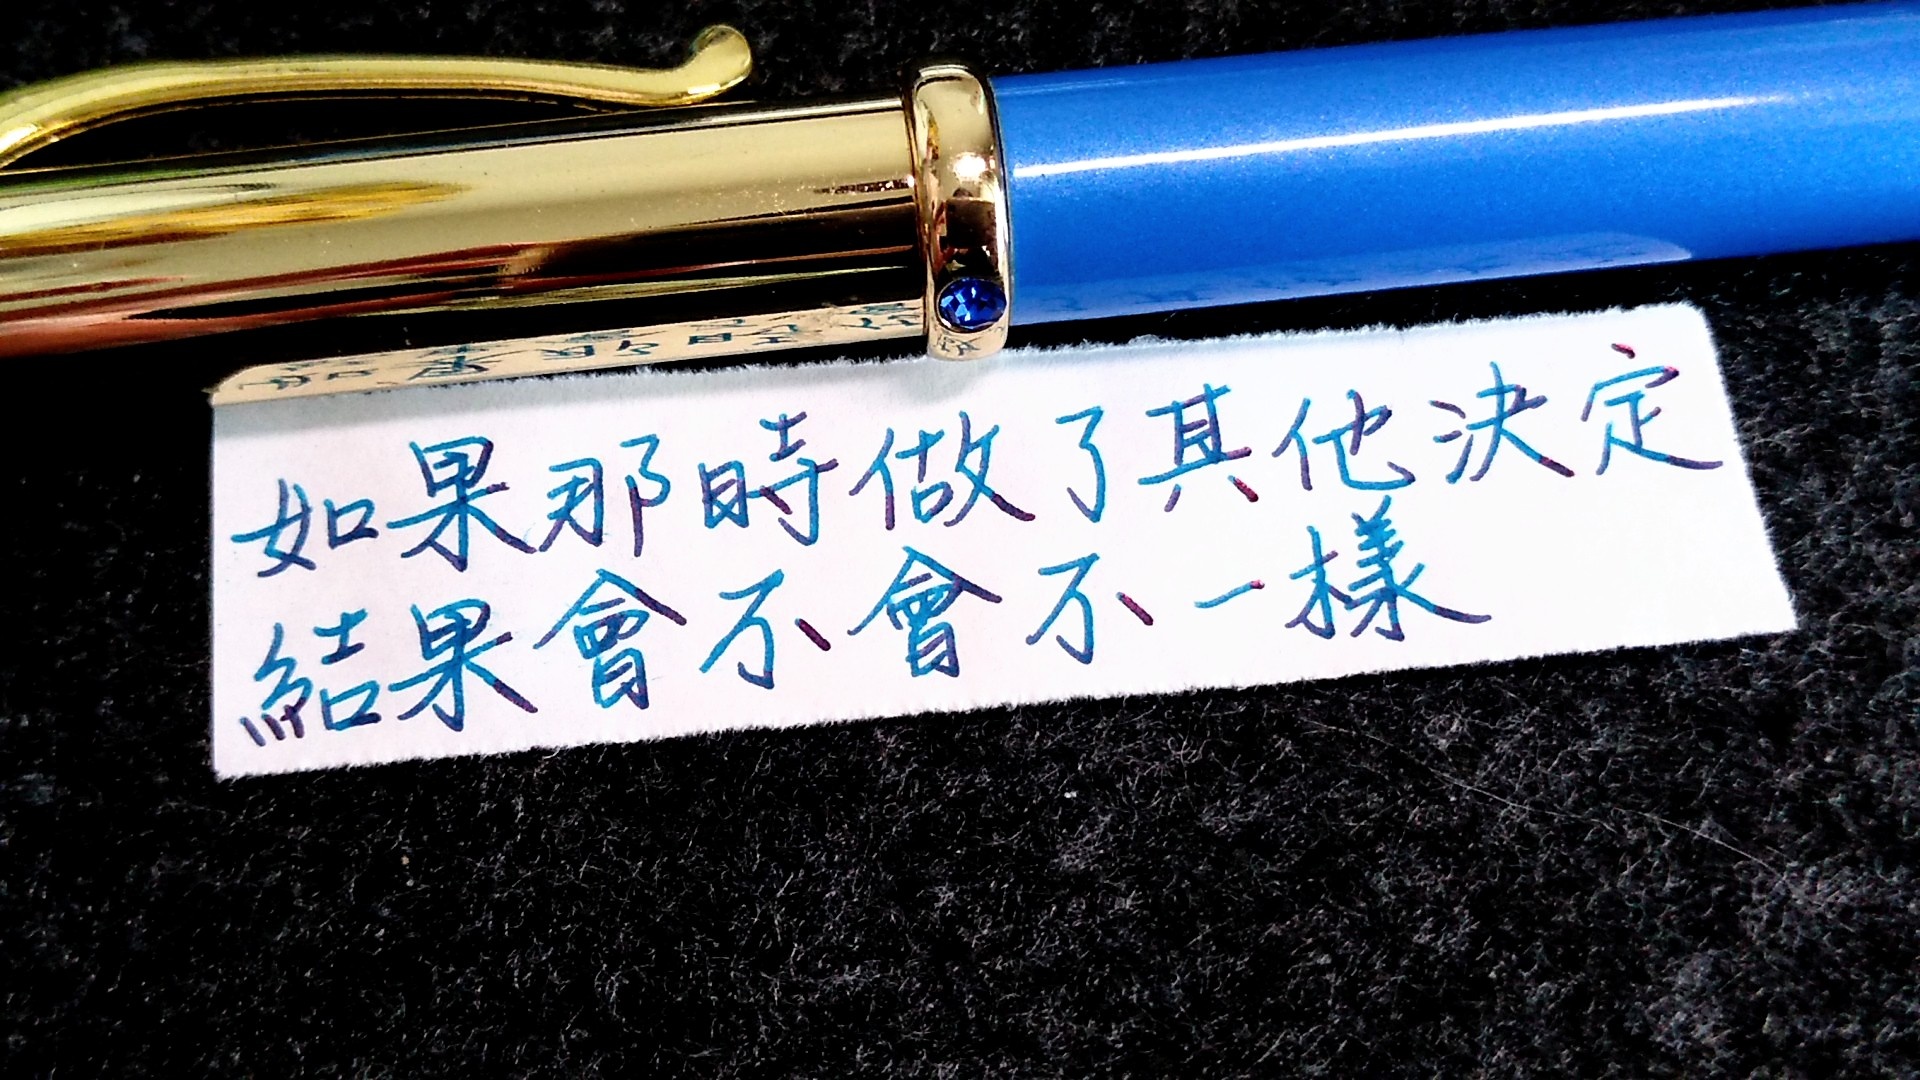 如果那時做了其他決定
結果會不會不一樣